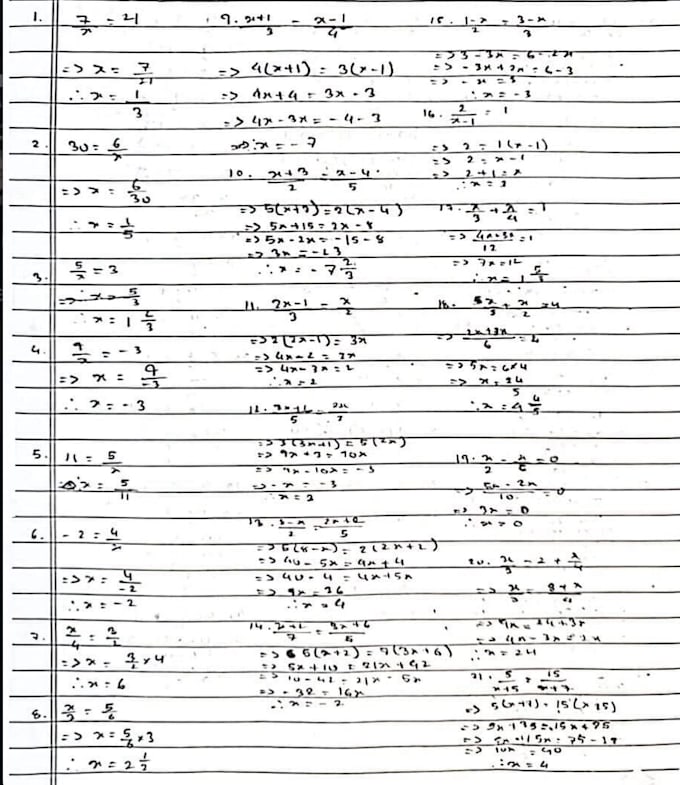 1. 7/x = 21
=> x = 7/21
∴ x = 1/3
2. 30 = 6/x
=> x = 6/30
∴ x = 1/5
3. 5/x = 3
=> x = 5/3
∴ x = 1 2/3
4. 9/x = -3
=> x = 9/-3
∴ x = -3
5. 11 = 5/x
x = 5/11
6. -2 = 4/x
=> x = 4/-2
∴ x = -2
7. x/4 = 3/2
=> x = 3/2 × 4
∴ x = 6
8. x/3 = 5/6
=> x = 5/6 × 3
∴ x = 2 1/2
9. x+1/3 = x-1/4
=> 4(x+1) = 3(x-1)
=> 4x+4 = 3x-3
=> 4x-3x = -4-3
x = -7
10. x+3/2 = x-4/5
=> 5(x+3) = 2(x-4)
=> 5x+15 = 2x-8
=> 5x-2x = -15-8
=> 3x = -23
∴ x = -7 2/3
11. 2x-1/3 = x/2
=> 2(2x-1) = 3x
=> 4x-2 = 3x
=> 4x-3x = 2
∴ x = 2
12. 3x+1/5 = 2x/3
=> 3(3x+1) = 5(2x)
=> 9x+3 = 10x
=> 9x-10x = -3
=> -x = -3
∴ x = 3
13. 8-x/2 = 2x+2/5
=> 5(8-x) = 2(2x+2)
=> 40-5x = 4x+4
=> 40-4 = 4x+5x
=> 9x = 36
∴ x = 4
14. x+2/7 = 3x+6/5
=> 5(x+2) = 7(3x+6)
=> 5x+10 = 21x+42
=> 10-42 = 21x-5x
=> -32 = 16x
∴ x = -2
15. 1-x/2 = 3-x/3
=> 3-3x = 6-2x
=> -3x+2x = 6-3
=> -x = 3
∴ x = -3
16. 2/x-1 = 1
=> 2 = 1(x-1)
=> 2 = x-1
=> 2+1 = x
∴ x = 3
17. x/3 + x/4 = 1
=> 4x+3x/12 = 1
=> 7x = 12
∴ x = 1 5/7
18. x/3 + x/2 = 4
=> 2x+3x/6 = 4
=> 5x = 6×4
=> x = 24/5
∴ x = 4 4/5
19. x/2 - x/5 = 0
=> 5x-2x/10 = 0
=> 3x = 0
∴ x = 0
20. x/3 = 2 + x/4
=> x/3 = 8+x/4
=> 4x = 24+3x
=> 4x-3x = 24
∴ x = 24
21. 5/x+5 = 15/x+7
=> 5(x+7) = 15(x+5)
=> 5x+35 = 15x+75
=> 10x = 40
∴ x = 4